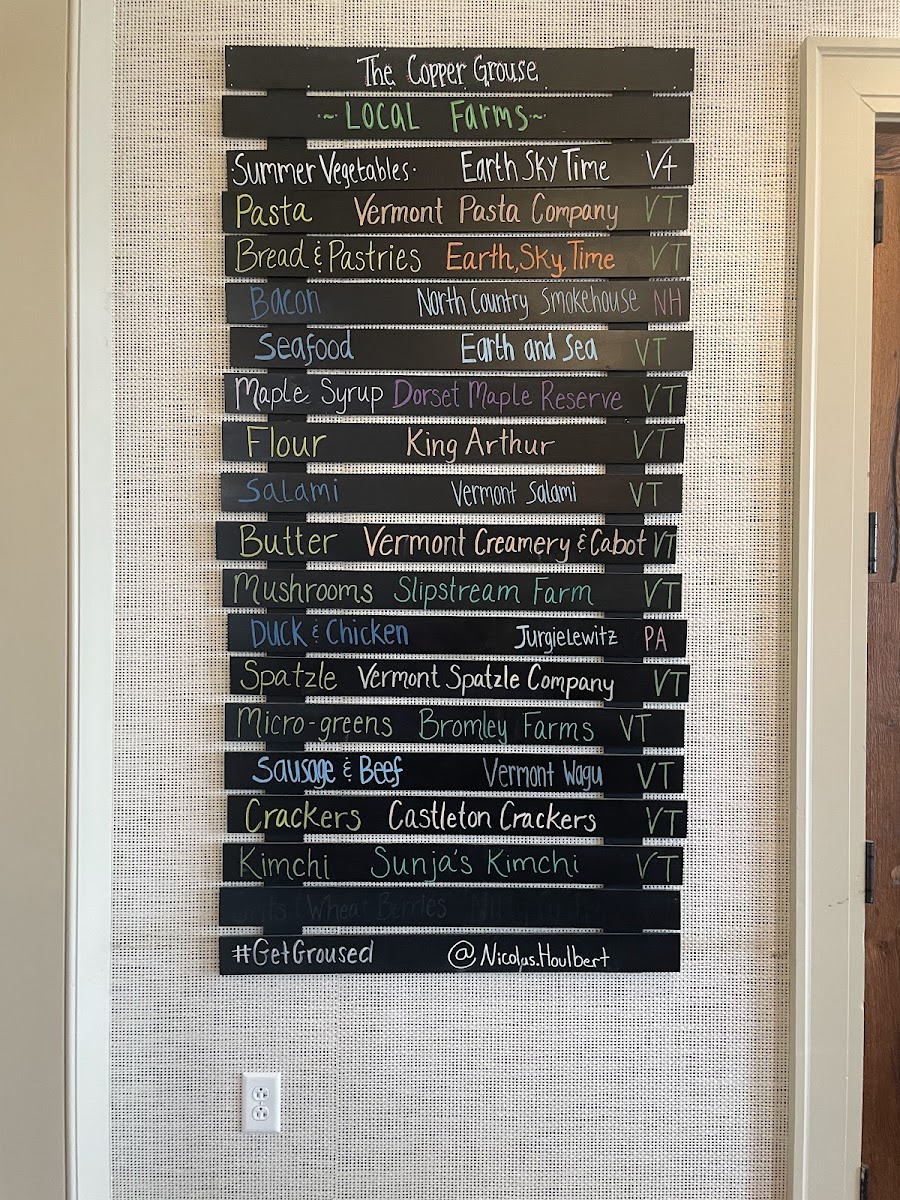 The Copper Grouse
~ Local Farms ~
·Summer Vegetables· Earth Sky Time Vt
Pasta Vermont Pasta Company VT
Bread & Pastries Earth, Sky, Time VT
Bacon North Country Smokehouse NH
Seafood Earth and Sea VT
Maple Syrup Dorset Maple Reserve VT
Flour King Arthur VT
Salami Vermont Salami VT
Butter Vermont Creamery & Cabot VT
Mushrooms Slipstream Farm VT
Duck & Chicken Jurgielewitz PA
Spatzle Vermont Spatzle Company VT
Micro-greens Bromley Farms VT
Sausage & Beef Vermont Wagu VT
Crackers Castleton Crackers VT
Kimchi Sunja's Kimchi VT
Wheat Berries
#GetGroused @Nicolas.Houlbert